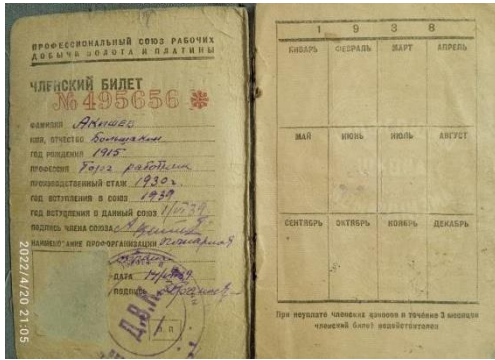 ПРОФЕССИОНАЛЬНЫЙ СОЮЗ РАБОЧИХ
ДОБЫЧИ ЗОЛОТА И ПЛАТИНЫ
ЧЛЕНСКИЙ БИЛЕТ
№ 495656
ФАМИЛИЯ Акишев
ИМЯ, ОТЧЕСТВО
ГОД РОЖДЕНИЯ 1915
ПРОФЕССИЯ работник
ПРОИЗВОДСТВЕННЫЙ СТАЖ 1930 г.
ГОД ВСТУПЛЕНИЯ В СОЮЗ 1939
ГОД ВСТУПЛЕНИЯ В ДАННЫЙ СОЮЗ
ПОДПИСЬ ЧЛЕНА СОЮЗА
НАИМЕНОВАНИЕ ПРОФОРГАНИЗАЦИИ
ДАТА
ПОДПИСЬ
Д.В.К.
2022/4/20 21:05
1 9 3 8
ЯНВАРЬ ФЕВРАЛЬ МАРТ АПРЕЛЬ
МАЙ ИЮНЬ ИЮЛЬ АВГУСТ
СЕНТЯБРЬ ОКТЯБРЬ НОЯБРЬ ДЕКАБРЬ
При неуплате членских взносов в течение 3 месяцев
членский билет недействителен